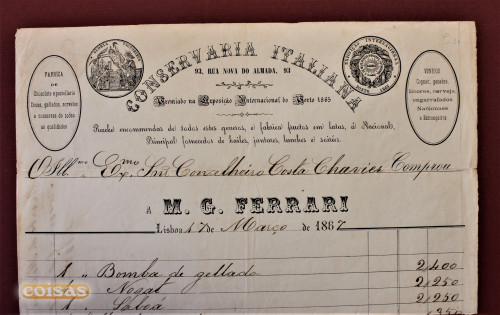 CONSERVARIA ITALIANA
93, RUA NOVA DO ALMADA, 93
Premiado na Exposição Internacional do Porto 1865
FABRICA
DE
Chocolate e pastilharia
Doces, gellados, sorvetes
e conservas de todas
as qualidades
EXPOSIÇÃO INTERNACIONAL
PORTO 1865
VINHOS
Cognac, genebra,
licores, cerveja,
engarrafados
Nacionaes
e Estrangeiros
Recebe encommendas de todos estes generos, e fabrica fructas em latas, á Nacional,
Principal fornecedor de bailes, jantares, lunches e soirées.
O Illmo Exmo Snr Conselheiro Costa Chavies Comprou
A M. G. FERRARI
Lisboa 17 de Março de 1867
1 " Bomba de gellado 2$400
1 " Nogat 2$250
1 " Sabiá 2$250
350
coisas